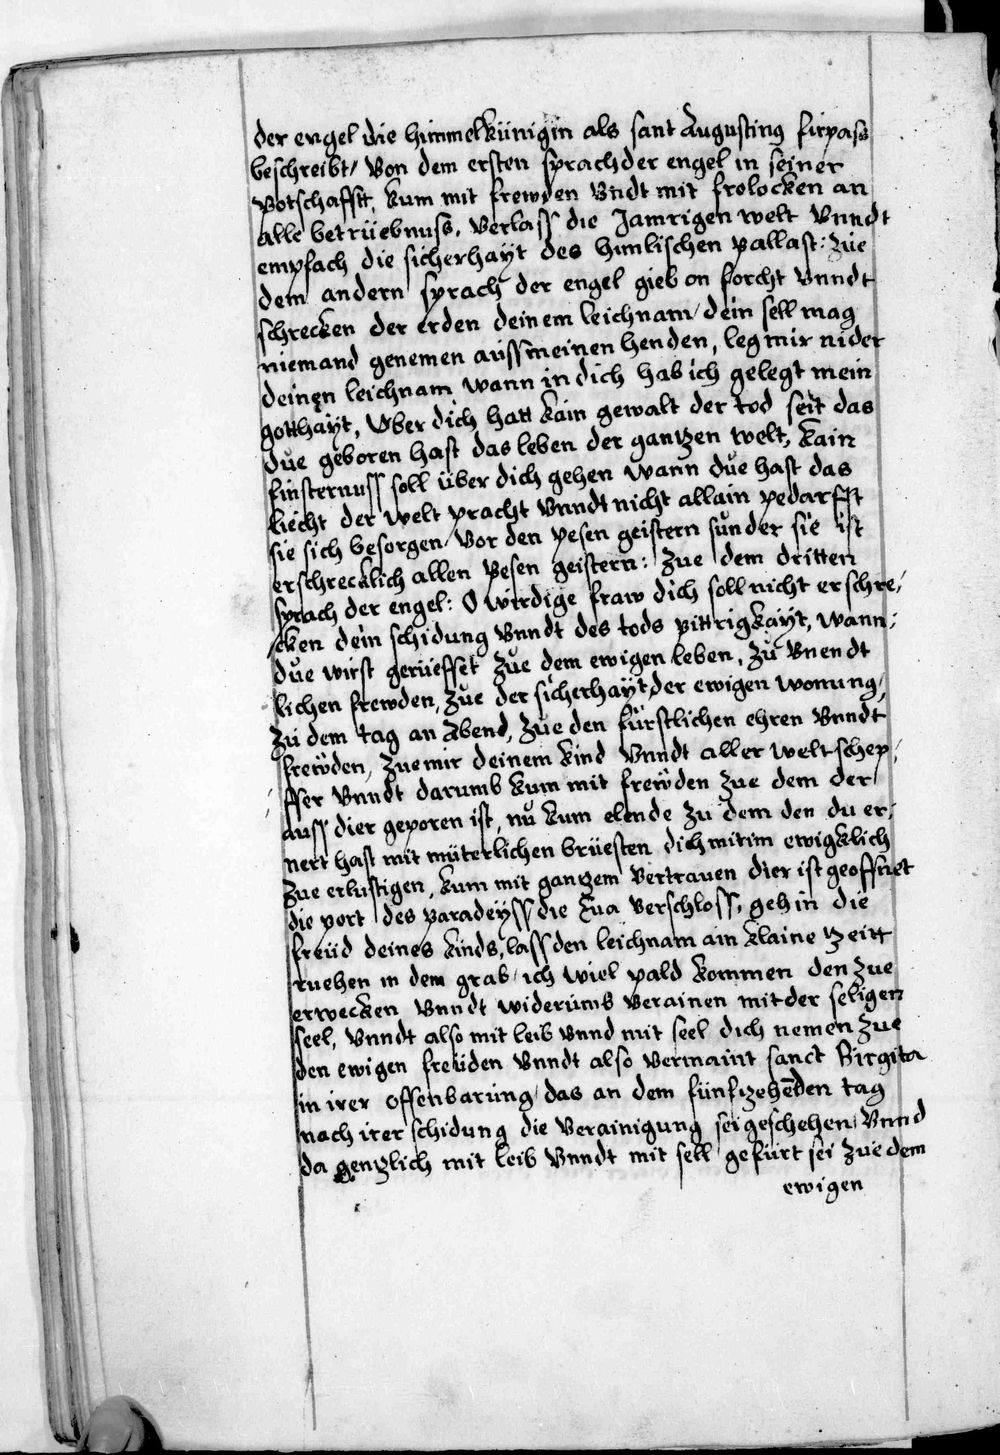 der engel die himmelkünigin als sant Augusting fürpass
beschreibt/ Von dem ersten sprach der engel in seiner
Botschafft, kum mit frewden Vndt mit frolocken an
alle betrüebnuss, Verlass die Jamrigen welt Vnndt
empfach die sicherhaÿt des himlischen pallast: züe
dem andern sprach der engel gieb on forcht Vnndt
schrecken der erden deinem leichnam/ dein sell mag
niemand genemen auss meinen henden, leg mir nider
deinen leichnam wann in dich hab ich gelegt mein
gotthaÿt, Vber dich hatt kain gewalt der tod seit das
due geboren hast das leben der gantzen welt, kain
finsternuss soll über dich gehen wann due hast das
liecht der welt pracht Vnndt nicht allain pedarfft
sie sich besorgen/ Vor den pesen geistern sunder sie ist
erschrecklich allen pesen geistern: Zue dem dritten
sprach der engel: O wirdige fraw dich soll nicht erschre/
cken dein schidung Vnndt des tods pittrigkaÿt, wann/
due wirst gerüeffet züe dem ewigen leben, zu Vnendt
lichen frewden, züe der sicherhaÿt der ewigen wonung/
zu dem tag an Abend, züe den fürstlichen ehren Vnndt
frewden, zue mir deinem kind Vnndt aller welt schep/
ffer Vnndt darumb kum mit frewden zue dem der
auss dier geporen ist, nu kum elende zu dem den du er/
nert hast mit müterlichen brüesten dich mit im ewigklich
zue erlustigen, kum mit gantzem Vertrauen dier ist geoffnet
die port des paradeÿss die Eua Verschloss, geh in die
freüd deines kinds, lass den leichnam ain klaine tzeitt
ruehen in dem grab/ ich wiel pald kommen den zue
erwecken Vnndt widerumb Verainen mit der seligen
seel, Vnndt also mit leib Vnnd mit seel dich nemen zue
den ewigen freüden Vnndt also Vermaint sanct Birgita
in irer offenbarung/ das an dem fünfzehenden tag
nach irer schidung die Verainigung sei geschehen/ Vnnd
da gentzlich mit leib Vnndt mit sell gefürt sei züe dem
ewigen